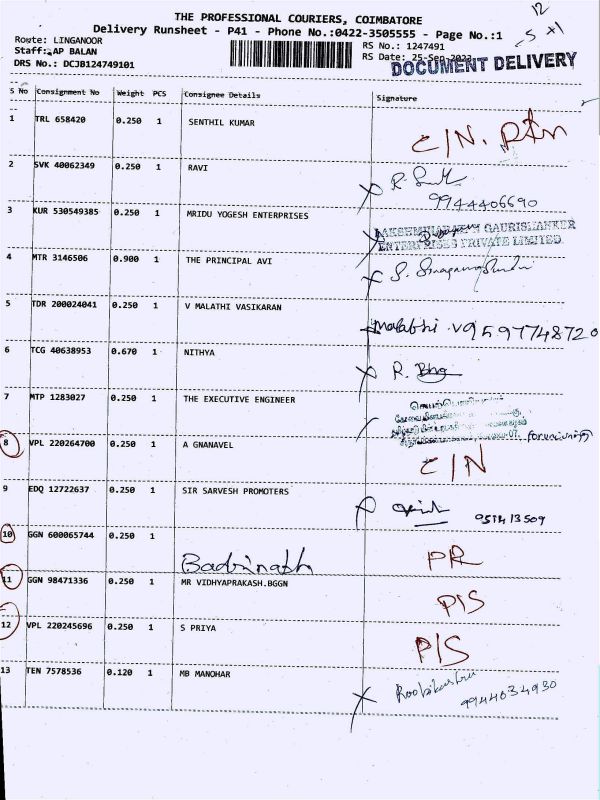 12
-5 +1
THE PROFESSIONAL COURIERS, COIMBATORE
Delivery Runsheet - P41 - Phone No.:0422-3505555 - Page No.:1
Route: LINGANOOR
RS No.: 1247491
Staff: AP BALAN
RS Date: 25-Sep-2023
DRS No.: DCJB124749101
DOCUMENT DELIVERY
S No Consignment No Weight PCS Consignee Details Signature
1 TRL 658420 0.250 1 SENTHIL KUMAR C/N.
2 SVK 40062349 0.250 1 RAVI R.
9944406690
3 KUR 530549385 0.250 1 MRIDU YOGESH ENTERPRISES
GAURISHANKER
ENTERPRISES PRIVATE LIMITED
4 MTR 3146506 0.900 1 THE PRINCIPAL AVI S.
5 TDR 200024041 0.250 1 V MALATHI VASIKARAN Malathi V 9597748720
6 TCG 40638953 0.670 1 NITHYA R.
7 MTP 1283027 0.250 1 THE EXECUTIVE ENGINEER
8 VPL 220264700 0.250 1 A GNANAVEL C/N
9 EDQ 12722637 0.250 1 SIR SARVESH PROMOTERS
10 GGN 600065744 0.250 1 Badrinath PR
11 GGN 98471336 0.250 1 MR VIDHYAPRAKASH.BGGN P/S
12 VPL 220245696 0.250 1 S PRIYA P/S
13 TEN 7578536 0.120 1 MB MANOHAR
9944034930